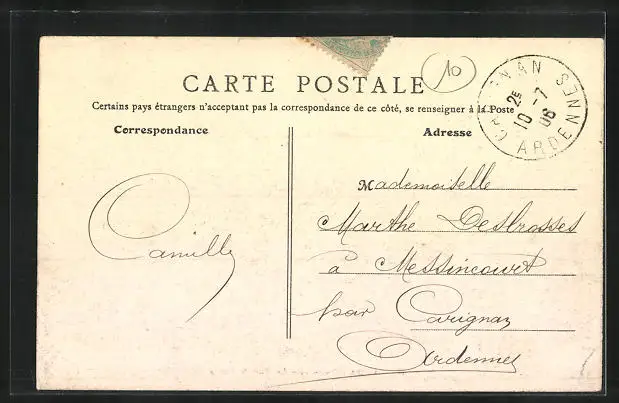 10
CARTE POSTALE
Certains pays étrangers n'acceptant pas la correspondance de ce côté, se renseigner à la Poste
CARIGNAN ARDENNES
2E
10 -7
06
Correspondance
Adresse
Camille
Mademoiselle
Marthe Desbrosses
à Messincourt
par Carignan
Ardennes